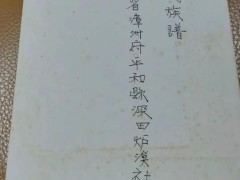 族譜
省漳州府平和縣深田炉溪社